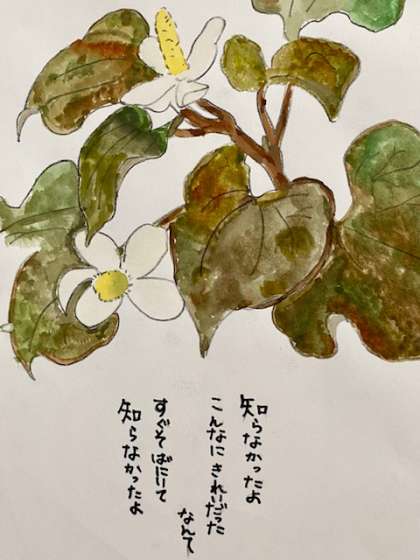 知らなかったよ
こんなにきれいだった
なんて
すぐそばにいて
知らなかったよ